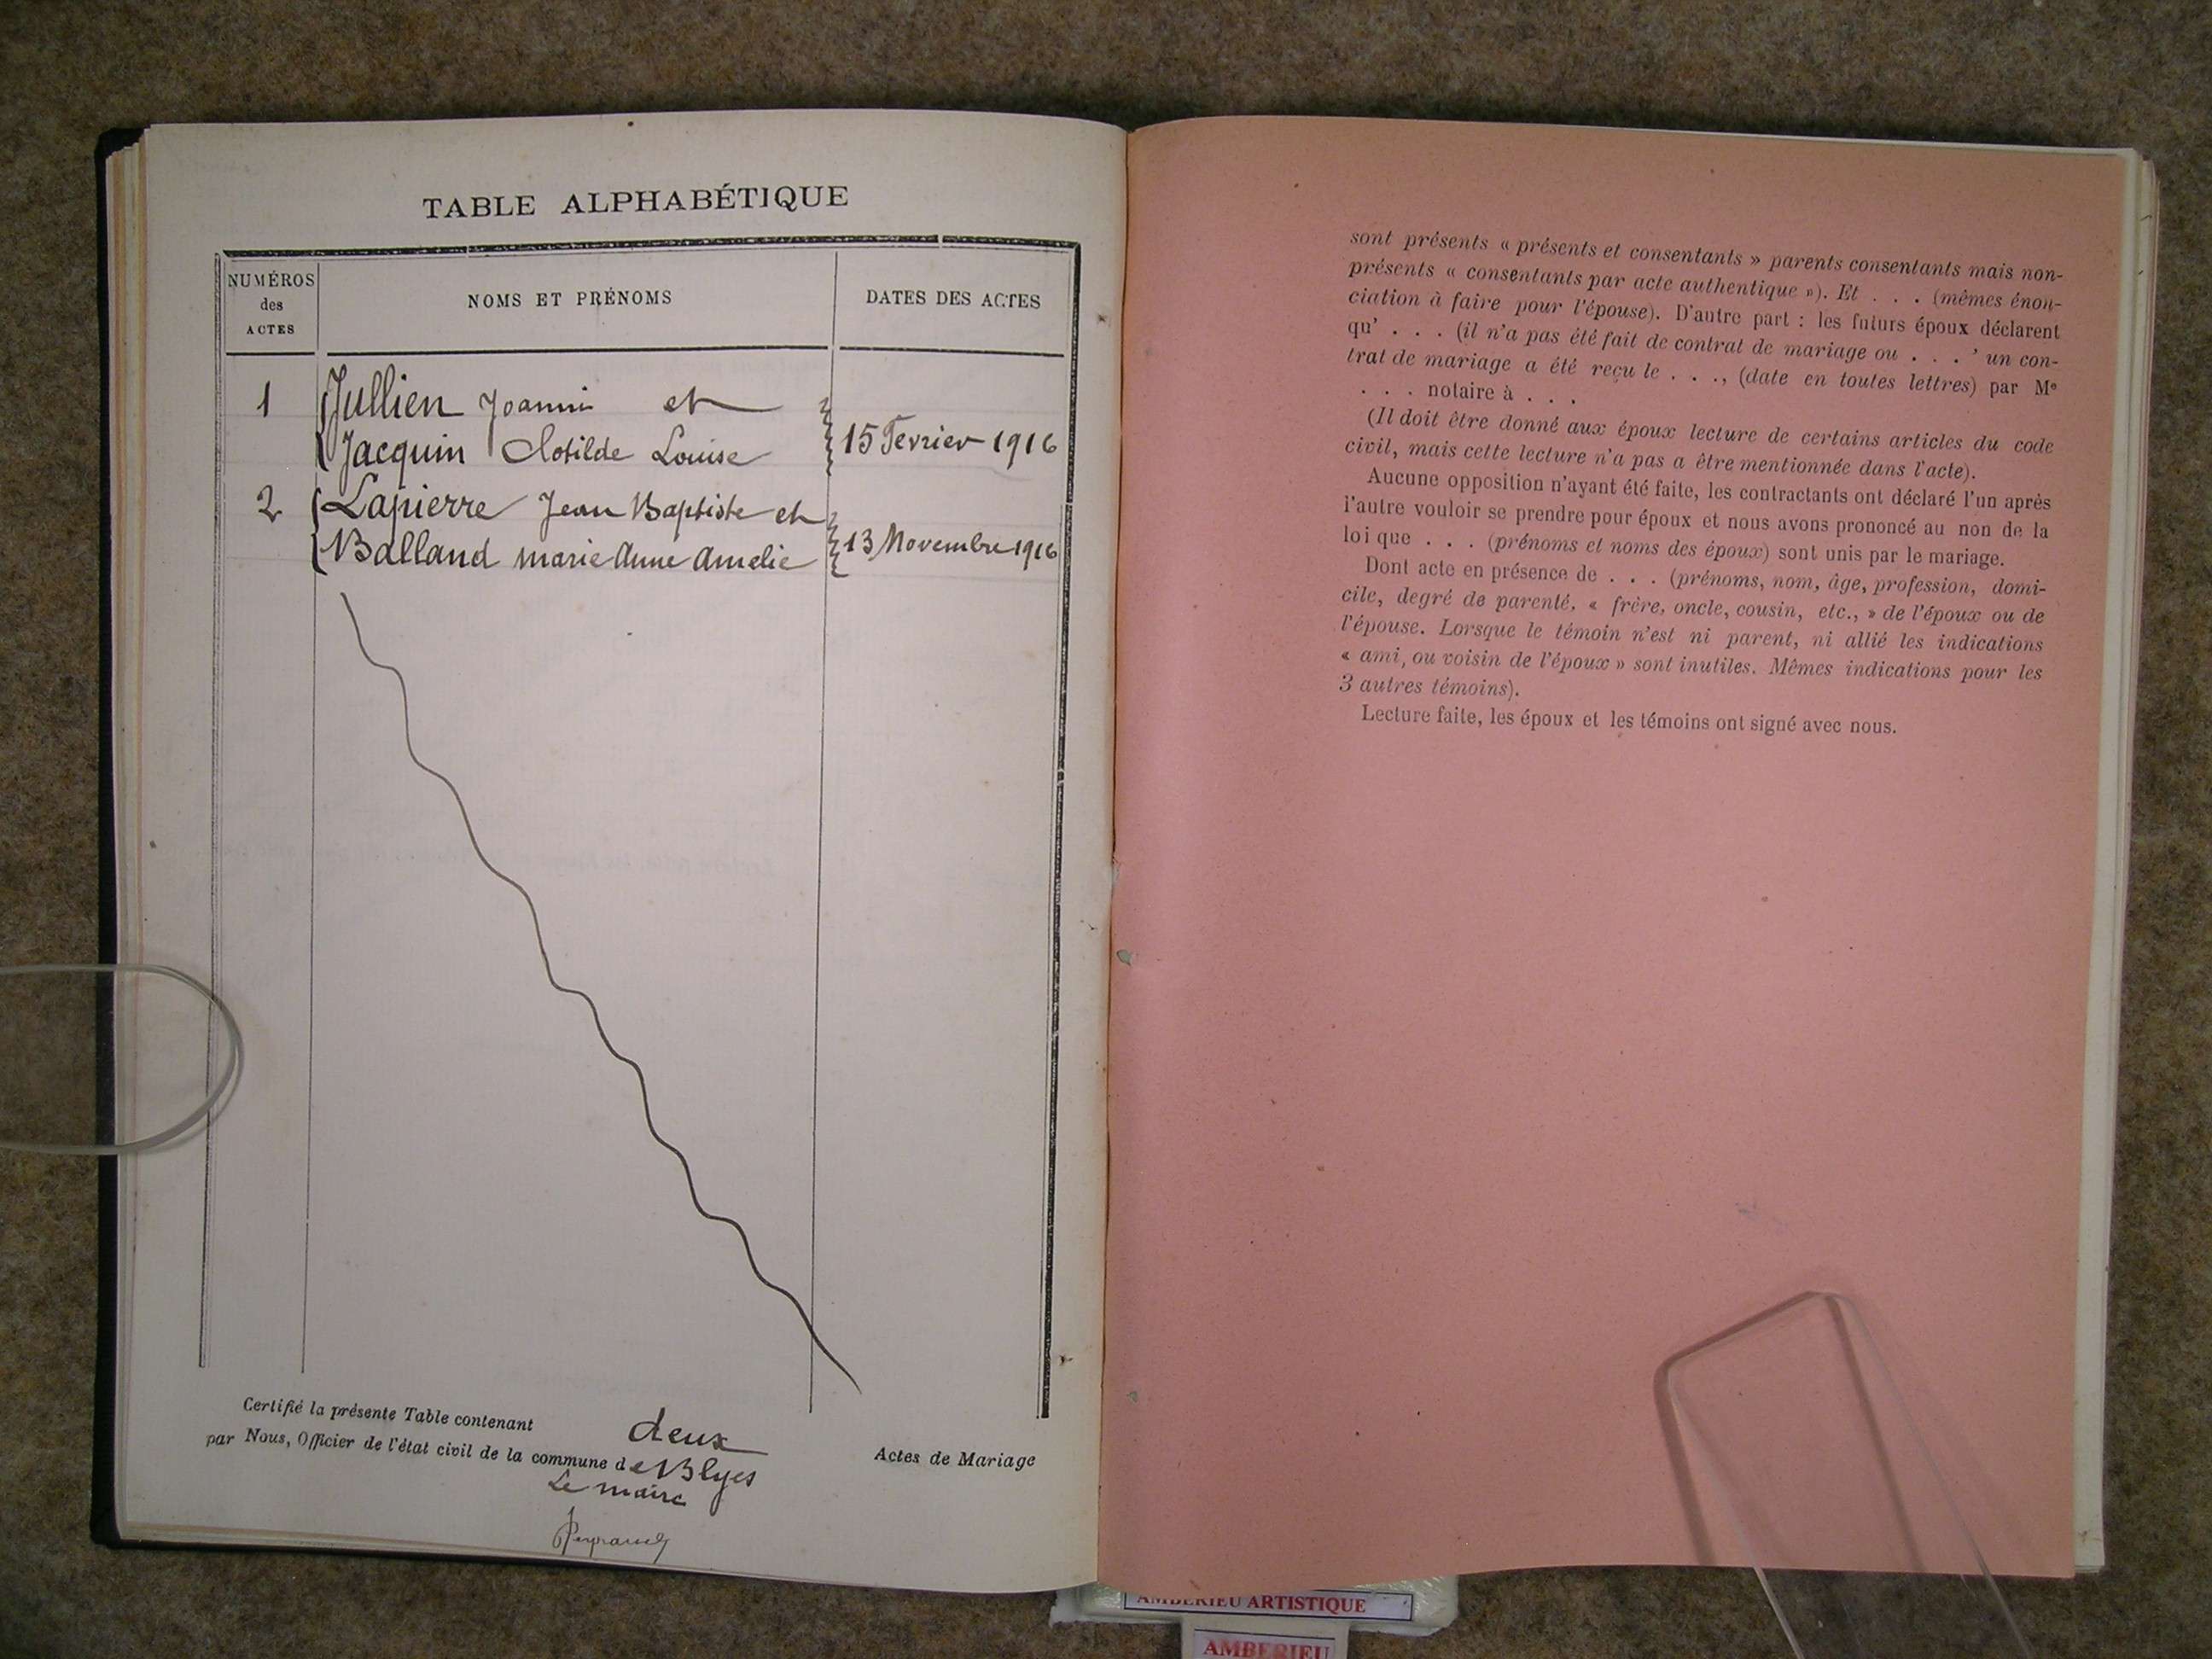 TABLE ALPHABÉTIQUE
NUMÉROS
des
ACTES
NOMS ET PRÉNOMS
DATES DES ACTES
1
Jullien Joanni et
Jacquin Clotilde Louise
15 Fevrier 1916
2
Lapierre Jean Baptiste et
Balland marie Anne Amelie
13 Novembre 1916
Certifié la présente Table contenant deux Actes de Mariage
par Nous, Officier de l'état civil de la commune de Blyes
Le maire
sont présents « présents et consentants » parents consentants mais non-
présents « consentants par acte authentique »). Et . . . (mêmes énon-
ciation à faire pour l'épouse). D'autre part : les futurs époux déclarent
qu' . . . (il n'a pas été fait de contrat de mariage ou . . . ' un con-
trat de mariage a été reçu le . . ., (date en toutes lettres) par Me
. . . notaire à . . .
(Il doit être donné aux époux lecture de certains articles du code
civil, mais cette lecture n'a pas a être mentionnée dans l'acte).
Aucune opposition n'ayant été faite, les contractants ont déclaré l'un après
l'autre vouloir se prendre pour époux et nous avons prononcé au non de la
loi que . . . (prénoms et noms des époux) sont unis par le mariage.
Dont acte en présence de . . . (prénoms, nom, âge, profession, domi-
cile, degré de parenté, « frère, oncle, cousin, etc., » de l'époux ou de
l'épouse. Lorsque le témoin n'est ni parent, ni allié les indications
« ami, ou voisin de l'époux » sont inutiles. Mêmes indications pour les
3 autres témoins).
Lecture faite, les époux et les témoins ont signé avec nous.
AMBERIEU ARTISTIQUE
AMBERIEU